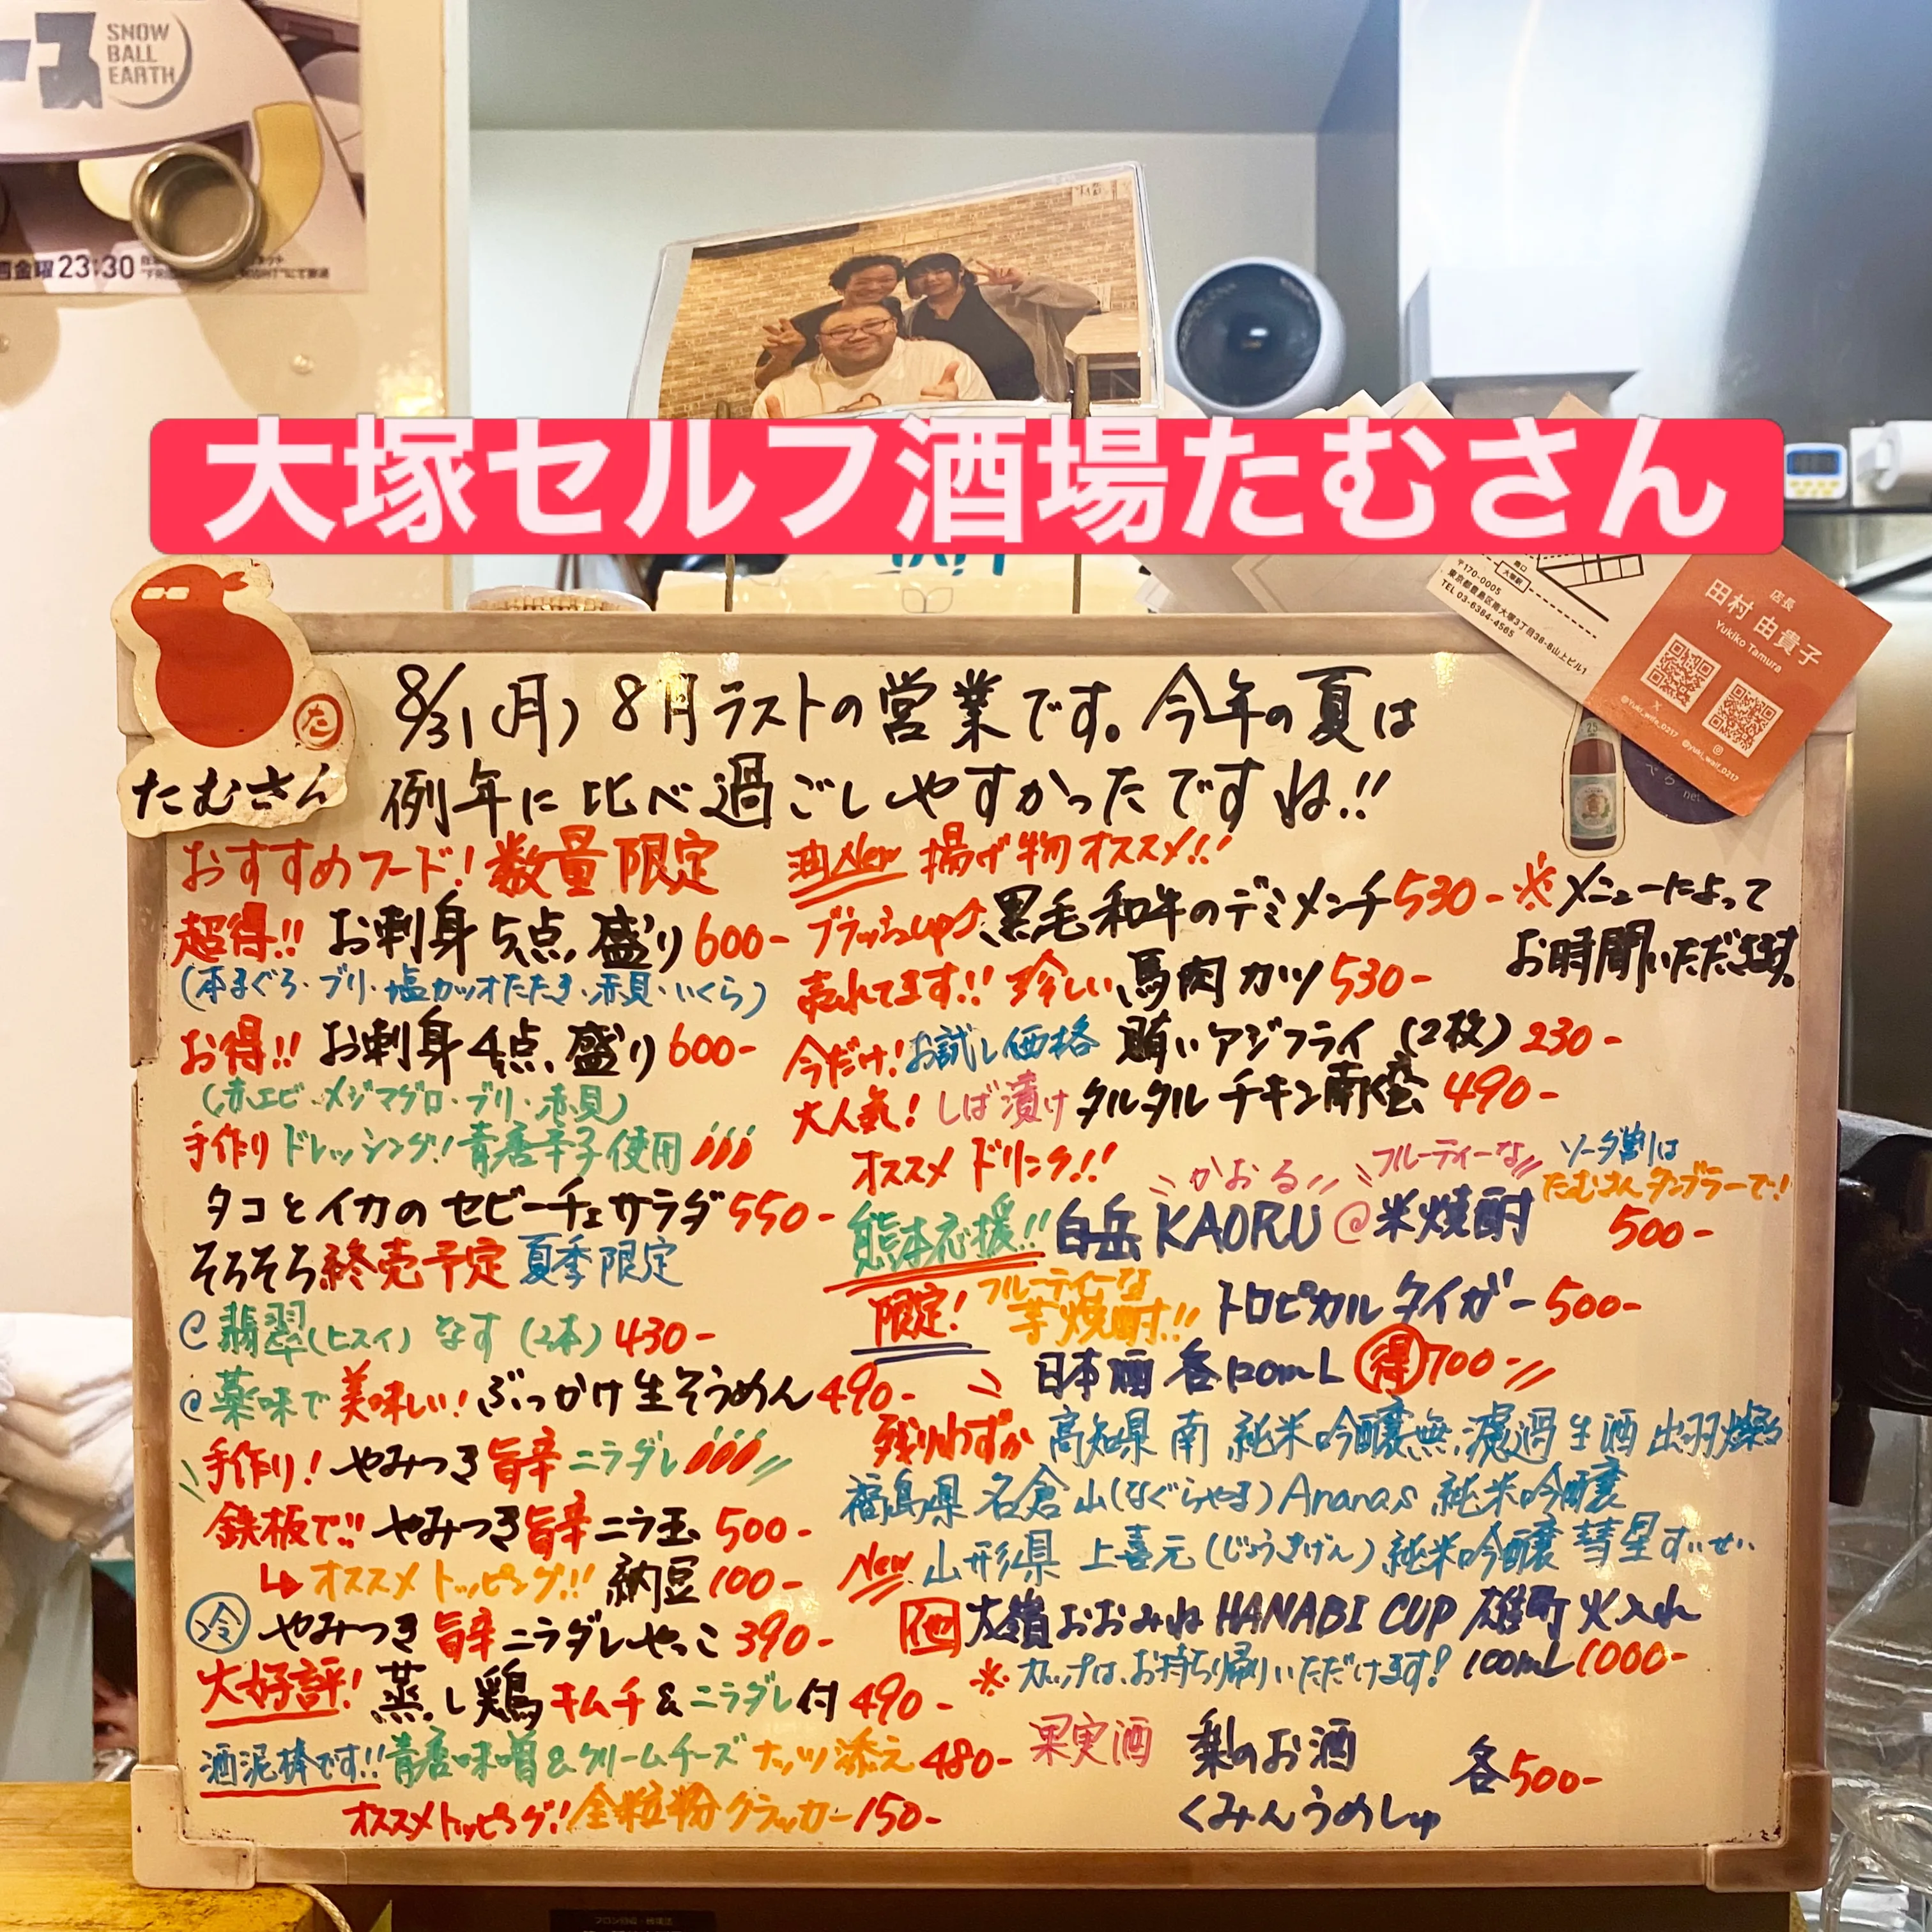 ース
SNOW
BALL
EARTH
金曜 23:30
大塚セルフ酒場たむさん
〒170-0005
東京都豊島区南大塚3丁目38-8山上ビル1
TEL 03-6384-4565
店長
田村 由貴子
Yukiko Tamura
X
た
たむさん
8/31(月) 8月ラストの営業です。今年の夏は
例年に比べ過ごしやすかったですね!!
おすすめフード!数量限定
超得!! お刺身5点盛り600-
(本まぐろ・ブリ・塩カツオたたき・赤貝・いくら)
お得!! お刺身4点盛り600-
(赤エビ・メジマグロ・ブリ・赤貝)
手作りドレッシング!青唐辛子使用
タコとイカのセビーチェサラダ550-
そろそろ終売予定 夏季限定
@翡翠(ヒスイ)なす(2本)430-
@薬味で美味しい!ぶっかけ生そうめん490-
手作り!やみつき旨辛ニラダレ
鉄板で!!やみつき旨辛ニラ玉500-
↳オススメトッピング!!納豆100-
冷 やみつき旨辛ニラダレやっこ390-
大好評!蒸し鶏キムチ&ニラダレ付490-
酒泥棒です!!青唐味噌&クリームチーズナッツ添え480-
オススメトッピング!全粒粉クラッカー150-
油New 揚げ物オススメ!!
ブラッシュup↑黒毛和牛のデミメンチ530-
※メニューによって
お時間いただきます。
売れてます!!珍しい馬肉カツ530-
今だけ!お試し価格 賄いアジフライ(2枚)230-
大人気!しば漬けタルタルチキン南蛮490-
オススメドリンク!!
かおる フルーティーな
ソーダ割は
たむさんタンブラーで!
熊本応援!!白岳KAORU@米焼酎 500-
限定!フルーティーな芋焼酎!!トロピカルタイガー500-
日本酒各120mL 得700-
残りわずか 高知県 南 純米吟醸無濾過生酒 出羽燦々
福島県 名倉山(なぐらやま)Ananas 純米吟醸
New 山形県 上喜元(じょうきげん)純米吟醸 彗星すいせい
他 大嶺おおみねHANABI CUP 雄町火入れ
※カップは、お持ち帰りいただけます! 100mL1000-
果実酒 梨のお酒
くみんうめしゅ
各500-